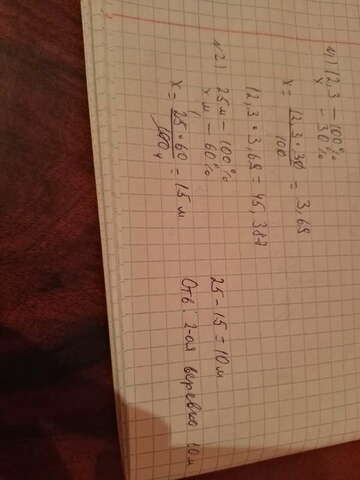 №1) 12,3 – 100%
x – 30%
x = 12,3·30 / 100 = 3,69
12,3 · 3,69 = 45,387
№2) 25м – 100%
x м – 60%
x = 25·60 / 100 = 15 м
25 – 15 = 10 м
Отв: 2-ая веревка 10 м